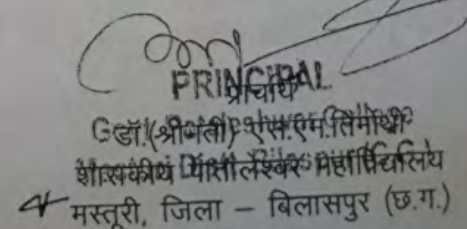 PRINCIPAL
प्राचार्य
डॉ.(श्रीमती) एस.एम.तिमोथी
शासकीय पातालेश्वर महाविद्यालय
मस्तूरी, जिला – बिलासपुर (छ.ग.)